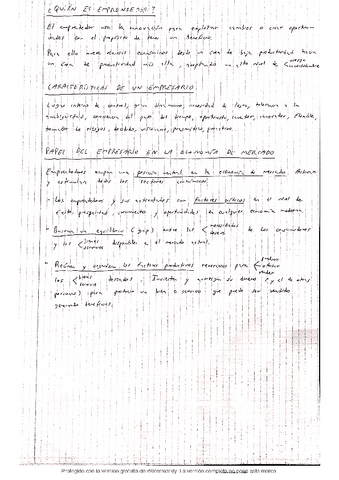 ¿QUIÉN ES EMPRENDEDOR?
El emprendedor usa la innovación para explotar cambios o crear oportuni-
dades con el propósito de tener un beneficio.
Para ello mueve recursos económicos desde un área de baja productividad hacia
un área de productividad más alta, aceptando un alto nivel de riesgo incertidumbre
CARACTERÍSTICAS DE UN EMPRESARIO
Lugar interno de control, gran dinamismo, necesidad de logro, tolerancia a la
ambigüedad, conciencia del paso del tiempo, creativo, flexible,
tomador de riesgos, visionario, proactivo
PAPEL DEL EMPRESARIO EN LA ECONOMÍA DE MERCADO
Emprendedores ocupan una posición central en la economía de mercado. Activan
y estimulan todos los sectores económicos.
- Los emprendedores y sus actividades son factores críticos en el nivel de
éxito, prosperidad, crecimiento y oportunidades en cualquier economía moderna.
- Buscan un equilibrio (gap) entre necesidades deseos de los consumidores
y los bienes servicios disponibles en el mercado actual.
- Reúnen y organizan los factores productivos necesarios para producir vender
los bienes servicios deseados. Invierten y arriesgan su dinero (y el de otras
personas) para producir un bien o servicio que pueda ser vendido
generando beneficio.
Protegido con la versión gratuita de La versión completa no pone esta marca.